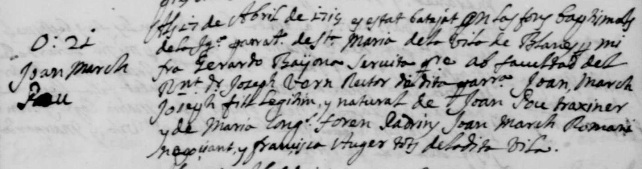 Als 17 de Abril de 1715 es estat batejat en las fons baptismals
O: 21
de la Igª parrail. de Stª Maria dela Vila de Blanes p mi
Joan March
Pou
fra Gerardo Bajona Servita pre ab facultad del
Rnt dr Joseph Vern Rector de dita parrª. Joan, March
Joseph fill llegitim, y natural de Joan Pou traginer
y de Maria conqs. foren Padrins Joan March Romani
negociant, y Francisca Auger tots dela dita Vila.